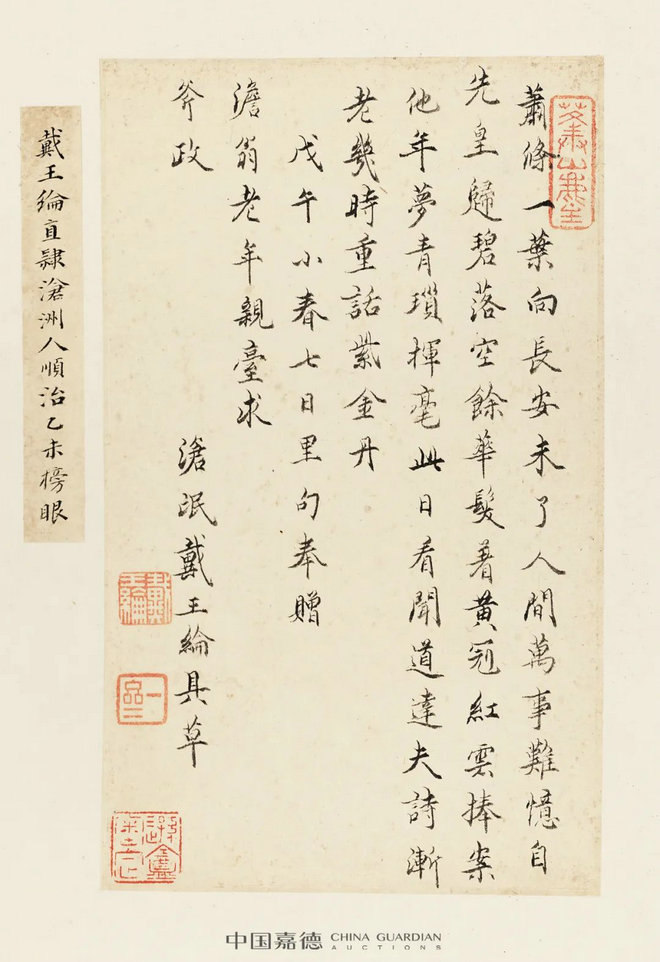 蕭條一葉向長安未了人間萬事難憶自
先皇歸碧落空餘華髮着黃冠紅雲捧案
他年夢青瑣揮毫此日看聞道達夫詩漸
老幾時重話紫金丹
戊午小春七日里句奉贈
澹翁老年親臺求
斧政
滄氓戴王綸具草
戴王綸直隸滄洲人順治乙未榜眼
中国嘉德 CHINA GUARDIAN
AUCTIONS